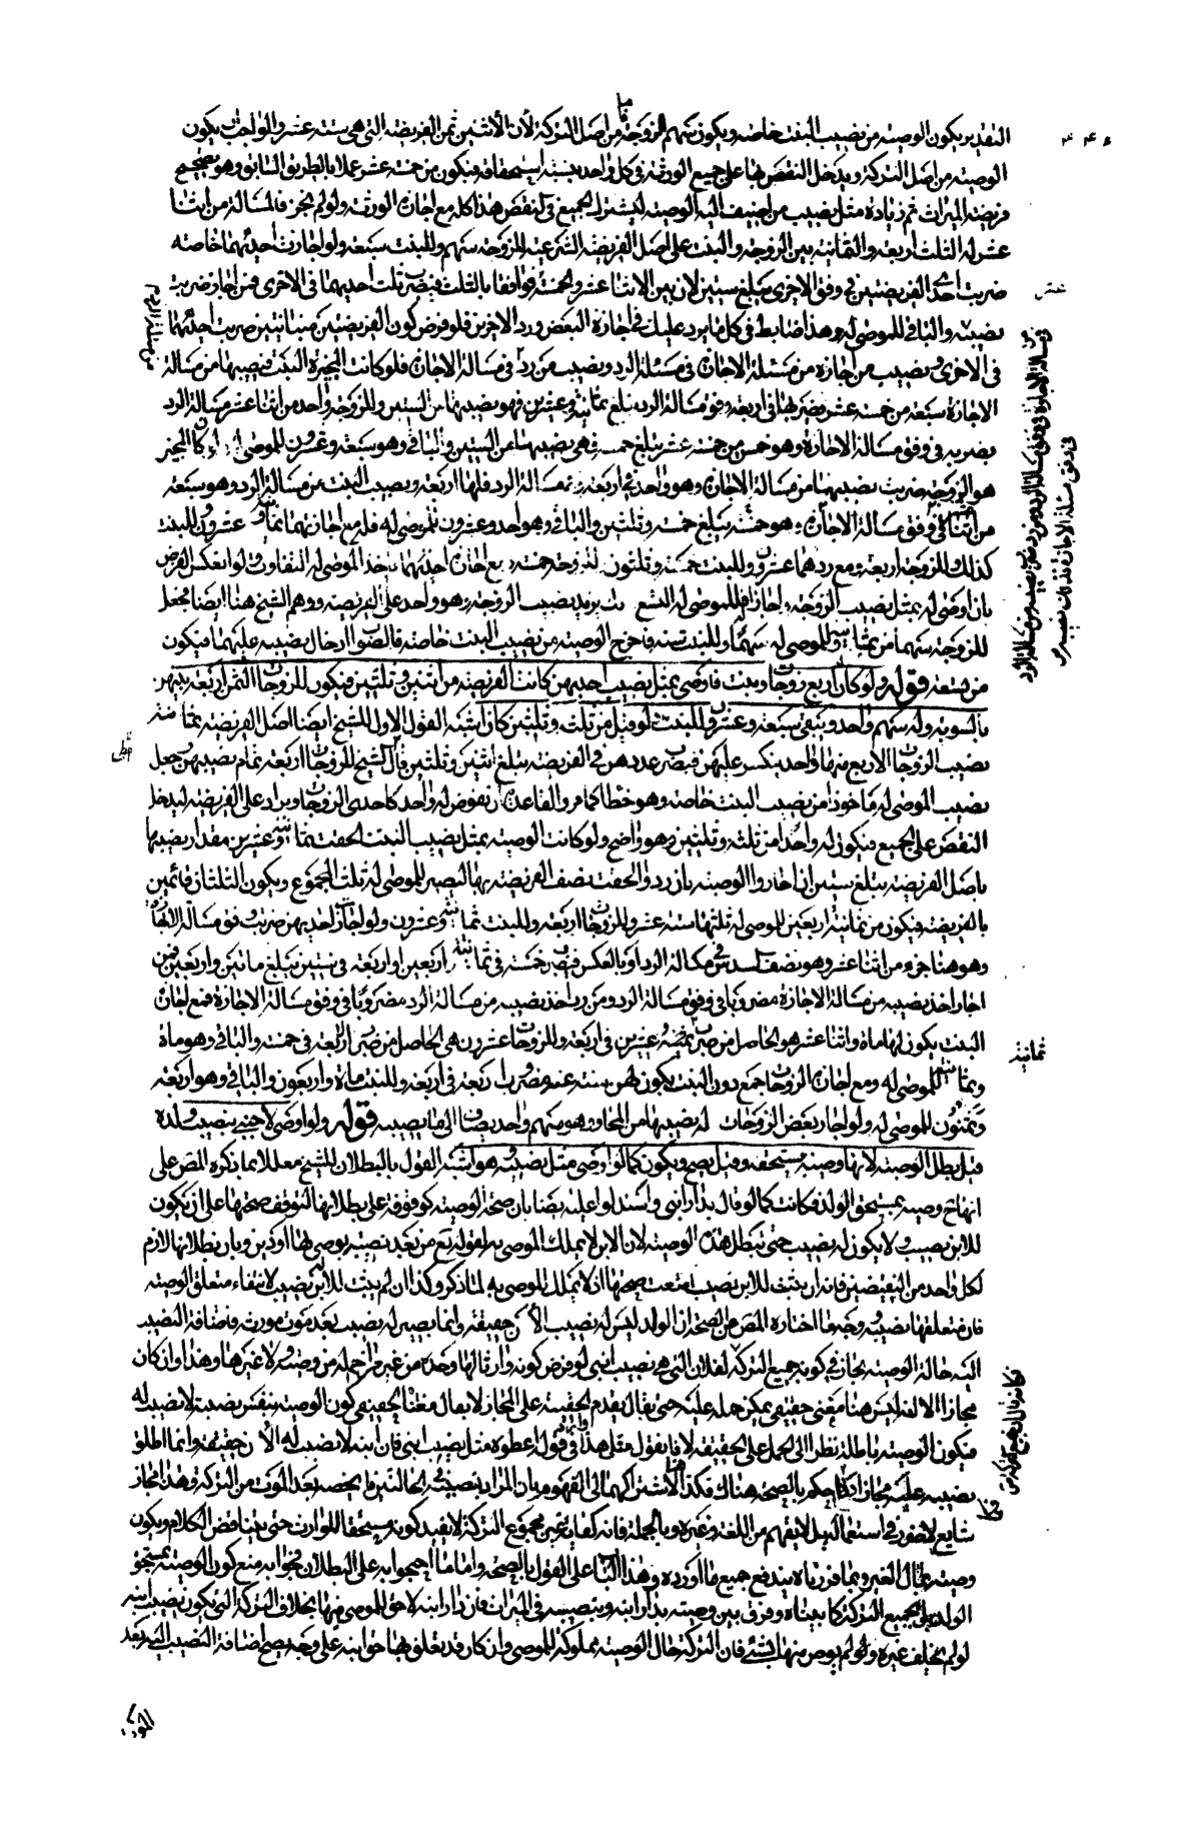 التقدير يكون الوصية من نصيب البنت خاصة ويكون سهم الزوجة من اصل التركة لأن الاثنين ثمن الفريضة التي هي ستة عشر والواجب يكون
الوصية من اصل التركة ويدخل النقص بها على جميع الورثة في كل واحد بنسبة استحقاقه فيكون من خمسة عشر عملا بالطريق السابق وهو تصحيح
فريضة الميراث ثم زيادة مثل نصيب من اضيف اليه الوصية ليشترك الجميع في النقص هذا كله مع اجازة الورثة ولو لم يجز فالمسألة من اثنا
عشر له الثلث اربعة والثمانية بين الزوجة والبنت على اصل الفريضة الشرعية للزوجة سهم وللبنت سبعة ولو اجازت احديهما خاصة
ضربت احدى الفريضتين في وفق الاخرى يبلغ ستين لان بين الاثنا عشر والخمسة عشر توافقا بالثلث فيضرب ثلث احديهما في الاخرى فمن اجاز ضربت
نصيبه والباقي للموصى له وهذا ضابط في كل ما يرد عليك في اجازة البعض ورد الاخرين فلو فرض كون الفريضتين متباينتين ضربت احديهما
في الاخرى ونصيب من اجازه من مسئلة الاجازة في مسئلة الرد ونصيب من رد في مسالة الاجازة فلو كانت المجيزة البنت فنصيبها من مسالة
الاجازة سبعة من خمسة عشر يضربها في اربعة وفق مسالة الرد يبلغ ثمانية وعشرين فهو نصيبها من الستين وللزوجة واحد من اثنا عشر مسالة الرد
يضربه في وفق مسالة الاجازة وهو خمس من خمسة عشر يبلغ خمسة فهي نصيبها من الستين والباقي وهو سبعة وعشرون للموصى له ولو كان المجيز
هو الزوجة ضربت نصيبها من مسالة الاجازة وهو واحد في اربعة مسالة الرد فلها اربعة ونصيب البنت من مسالة الرد وهو سبعة
من اثنا في وفق مسالة الاجازة وهو خمسة يبلغ خمسة وثلثين والباقي وهو احد وعشرون للموصى له فله مع اجازتهما ثمانية وعشرون وللبنت
كذلك وللزوجة اربعة ومع ردهما عشرون وللبنت خمسة وثلثون للزوجة خمسة ومع اجازة احديهما ياخذ الموصى له التفاوت ولو انعكس الفرض
بان اوصى له بمثل نصيب الزوجة واجازتا فللموصى له التسع يزيد نصيب الزوجة وهو واحد على الفريضة ووهم الشيخ هنا ايضا فجعل
للزوجة سهما من ثمانية وللموصى له سهما وللبنت ستة فاخرج الوصية من نصيب البنت خاصة فالصواب ادخال نصيبه عليهما فيكون
من تسعة قوله ولو كان اربع زوجات وبنت فاوصى بمثل نصيب احديهن كانت الفريضة من اثنين وثلثين فيكون للزوجات الثمن اربعة بينهن
بالسوية وله سهم واحد ويبقى سبعة وعشرون للبنت ولو قيل من ثلث وثلثين كان اشبه القول الاول للشيخ ايضا اصل الفريضة ثمانية
نصيب الزوجات الاربع منها واحد ينكسر عليهن فيضرب عددهن في الفريضة يبلغ اثنين وثلثين قال الشيخ للزوجات اربعة تمام نصيبهن جعل
نصيب الموصى له ماخوذا من نصيب البنت خاصة وهو خطا كما مر والقاعدة ان نفوض له واحد كاحدى الزوجات ويزاد على الفريضة ليدخل
النقص على الجميع فيكون له واحدا من ثلثة وثلثين وهو واضح ولو كانت الوصية بمثل نصيب البنت الحقت ثمانية وعشرين مقدار نصيبها
باصل الفريضة يبلغ ستين ان اجازوا الوصية وان ردوا الحقت نصف الفريضة بها ليصير للموصى له ثلث المجموع ويكون الثلثان قائمين
بالفريضة فيكون من ثمانية اربعين للموصى له ثلثها ستة عشر وللزوجات اربعة وللبنت ثمانية وعشرون ولو اجازت احديهن ضربت وفق مسالة الاجازة
وهو هنا جزو من اثنا عشر وهو نصف السدس في مسالة الرد او بالعكس فيضرب خمسة في ثمانية اربعين او اربعة في ستين يبلغ ماتين واربعين فمن
اجاز اخذ نصيبه من مسالة الاجازة مضروبا في وفق مسالة الرد ومن رد اخذ نصيبه من مسالة الرد مضروبا في وفق مسالة الاجازة فمع اجازة
البنت يكون لها ماة واثنا عشر هو الحاصل من ضرب ثمانية وعشرين في اربعة وللزوجات عشرون هي الحاصل من ضرب اربعة في خمسة والباقي وهو ماة
وثمانية للموصى له ومع اجازة الزوجات اجمع دون البنت يكون لهن ستة عشر مضروب اربعة في اربعة وللبنت ماة واربعون والباقي وهو اربعة
وثمنون للموصى له ولو اجاز بعض الزوجات له نصيبها من المجاوزه هو سهم واحد يضاف الى ما يصيبه قوله ولو اوصى لاجنبي بنصيب ولده
قيل يطل الوصية لانها وصية مستحقة وقيل يصح ويكون كما لو اوصى مثل نصيبه وهو اشبه القول بالبطلان للشيخ معللا بما ذكره المص على
انها ح وصية بمستحق الولد فكانت كما لو قال بدار ابني واستدلوا عليه بضا بان صحة الوصية موقوفة على بطلانها لتوقف صحتها على ان يكون
للابن نصيب ولا يكون له نصيب حتى تبطل هذه الوصية لان الابن لا يملك الموصى به لقوله تع من بعد وصية يوصي بها او دين وبان بطلانها لازم
لكل واحد من النقيضين فانه ان يثبت للابن نصيب امتنعت صحتها اذ لا يملك الموصى به لما ذكر وكذا ان لم يثبت للابن نصيب لانتفاء متعلق الوصية
فان متعلقها نصيبه ووجه ما اختاره المص من الصحة ان الولد ليس له نصيب الأن حقيقة وانما يصير له نصيب بعد موت مورثه فاضافة النصيب
اليه حالة الوصية مجاز في كونه جميع التركة لفلان التي هي نصيب ابني لو فرض كونه وارثا لها وحده من غير مزاحم له من وصية ولا غيرها وهذا وان كان
مجازا الا انه ليس هنا معنى حقيقي يمكن حمله عليه حتى يقال يقدم الحقيقة على المجاز لا يقال معناه الحقيقي كون الوصية بنفس نصيبه لا نصيب له
فيكون الوصية باطلة نظرا الى الحمل على الحقيقة لانا نقول مثل هذا وارد في قوله اعطوه مثل نصيب ابني فان ابنه لا نصيب له الأن حقيقة وانما اطلق
نصيبه عليه مجازا حكم بالصحة هناك فكذا هنا لاشتراكهما في القهوم وبان المراد بنصيبه في الحالتين ما يخصه بعد الموت من التركة وهذا المجاز
شايع لا قصور في استعماله بل لا يفهم من اللغة وغيره وبالجملة فانه كفاية عن مجموع التركة لا يقيد كونه مستحقا للوارث حتى يتناقض الكلام ويكون
وصية بمال الغير وبما قررناه يندفع جميع ما اورده وهذا البناء على القول بالصحة واما ما احتجوا به على البطلان فجوابه منع كون الوصية بمستحق
الولد بل بجميع التركة كما بيناه وفرق بين وصيته بدار ابنه وبنصيبه في الميراث فان دار ابنه لا حق للموصي فيها بخلاف التركة التي يكون نصيب ابنه
لو لم يخلف غيره ولو لم يوص منها بشئ فان التركة حال الوصية مملوكة للموصي وان كان قد تعلق بها حق ابنه على وجه يصح اضافة النصيب اليه بعد
ثمانية